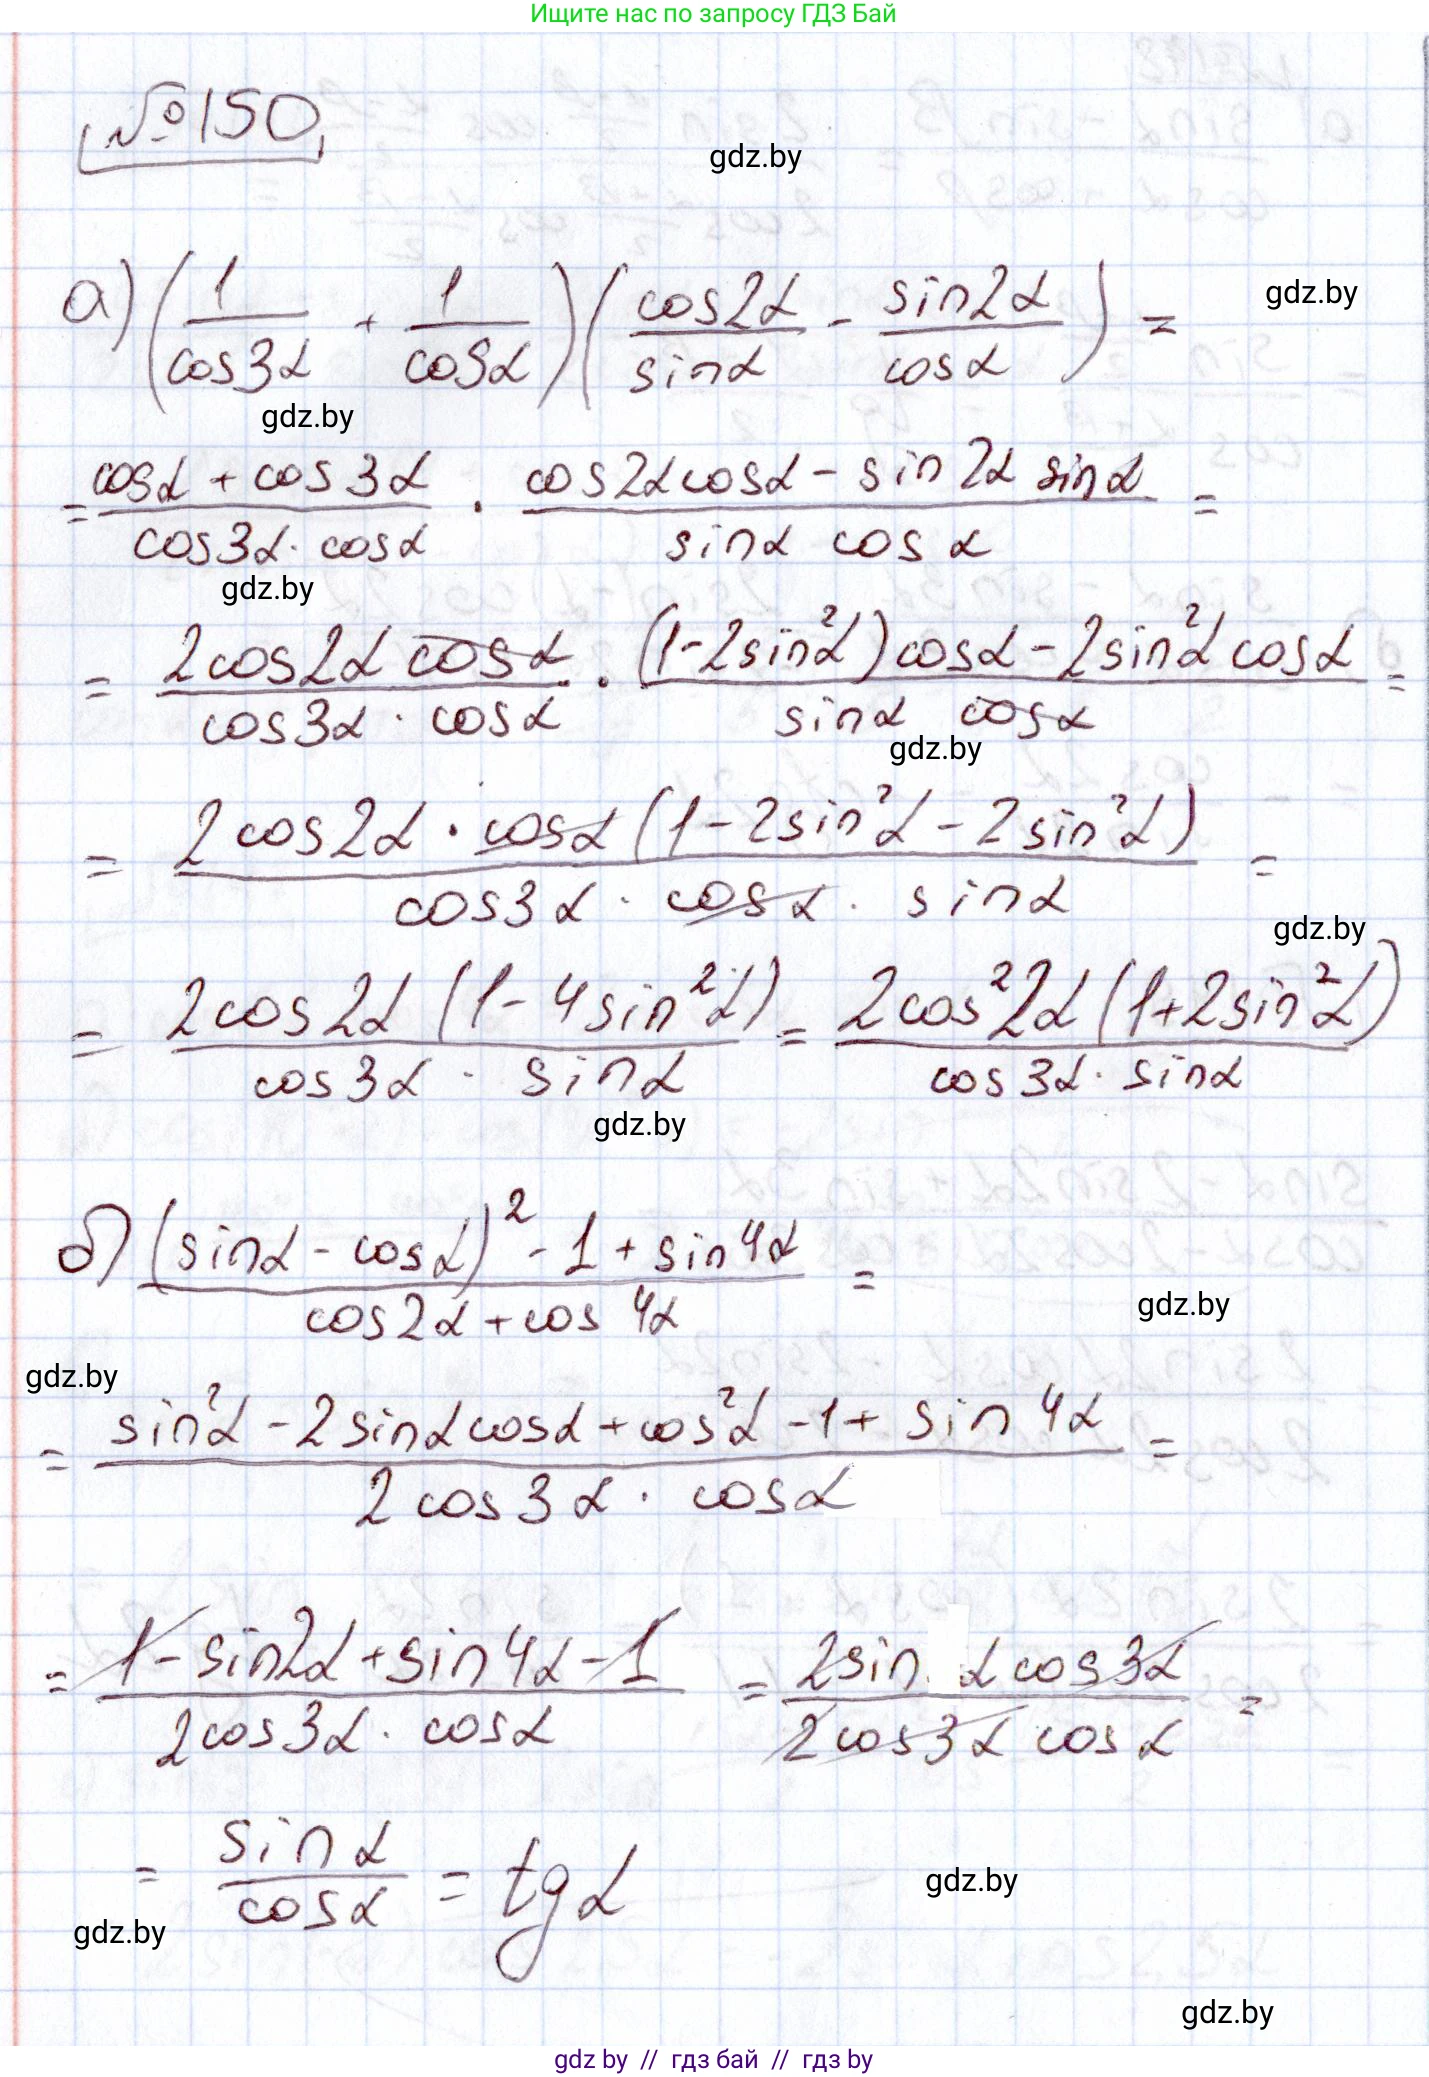 Ищите нас по запросу ГДЗ Бай
№150
gdz.by
а) (1/cos3α + 1/cosα)(cos2α/sinα - sin2α/cosα) =
gdz.by
gdz.by
= (cosα + cos3α)/(cos3α · cosα) · (cos2αcosα - sin2α sinα)/(sinα cosα) =
gdz.by
= (2cos2α cosα)/(cos3α · cosα) · ((1-2sin²α)cosα - 2sin²α cosα)/(sinα cosα) =
gdz.by
= (2cos2α · cosα(1-2sin²α - 2sin²α))/(cos3α · cosα · sinα) =
gdz.by
= (2cos2α(1-4sin²α))/(cos3α · sinα) = (2cos²2α(1+2sin²α))/(cos3α · sinα)
gdz.by
б) ((sinα - cosα)² - 1 + sin4α)/(cos2α + cos4α) =
gdz.by
gdz.by
= (sin²α - 2sinαcosα + cos²α - 1 + sin4α)/(2cos3α · cosα) =
= (1 - sin2α + sin4α - 1)/(2cos3α · cosα) = (2sin α cos3α)/(2cos3α cosα) =
= sinα/cosα = tgα
gdz.by
gdz.by
gdz.by
gdz by // гдз бай // гдз by